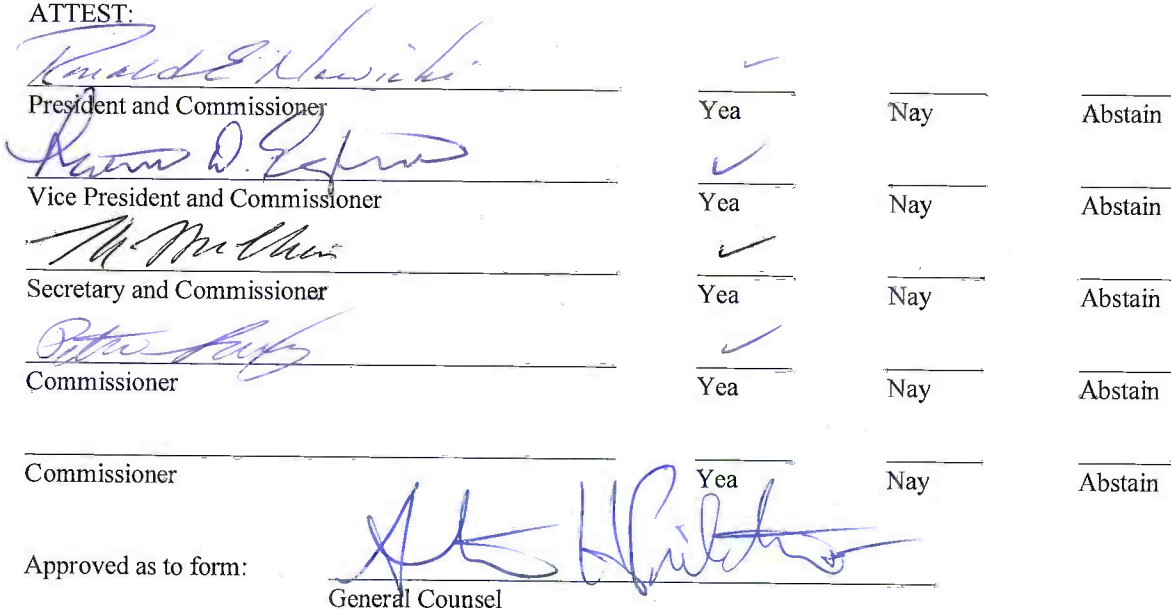 ATTEST:
Ronald E Nowicki ✓
President and Commissioner Yea Nay Abstain
D. ✓
Vice President and Commissioner Yea Nay Abstain
✓
Secretary and Commissioner Yea Nay Abstain
✓
Commissioner Yea Nay Abstain
Commissioner Yea Nay Abstain
Approved as to form:
General Counsel